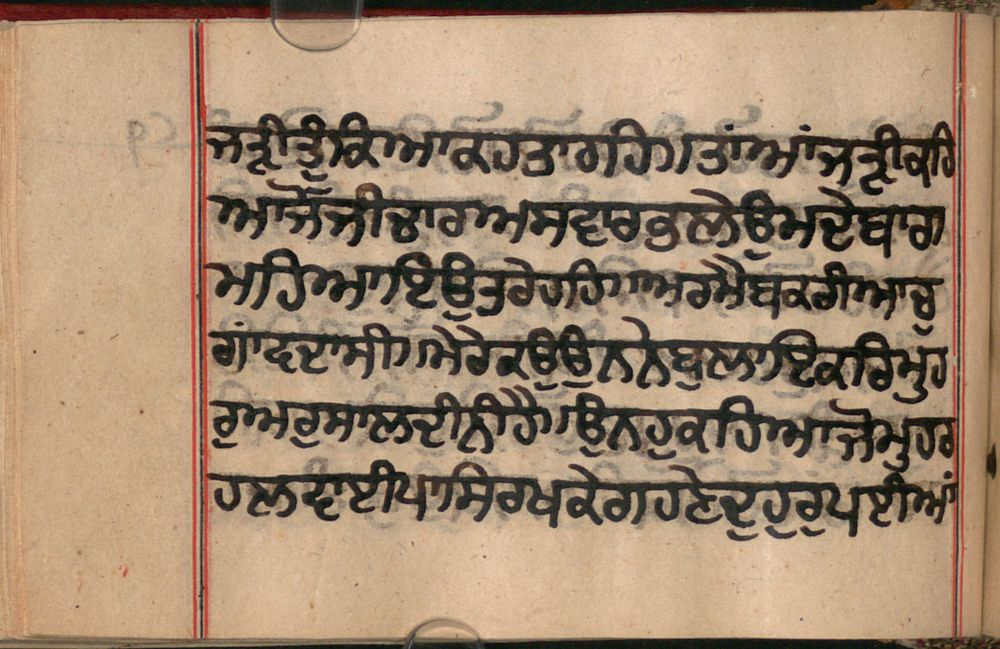 ਜਤ੍ਰੀਤੂੰਕਿਆਕਹਤਾਰਹਿ।।ਤਾਂਆਂਜਤ੍ਰੀਕਹਿ
ਆਜੋਜੀਚਾਰਅਸਵਾਰਭਲੇਉਸਦੇਬਾਰਾ
ਮਹਿਆਇਉਤਰੇਹਹਿ।।ਅਰਮੈਬਕਰੀਆਚੁ
ਗਾਂਵਦਾਸੀ।।ਮੇਰੇਕਉਉਨਨੇਬੁਲਾਇਕਰਿਮੁਹ
ਰੁਅਰੁਸਾਲਦੀਨੀਹੈ।।ਉਨਹੁਕਹਿਆਜੋਮੁਹਰ
ਹਲਵਾਈਪਾਸਿਰਖਕੇਗਹਣੇਦੁਹੁਰੁਪਈਆਂ